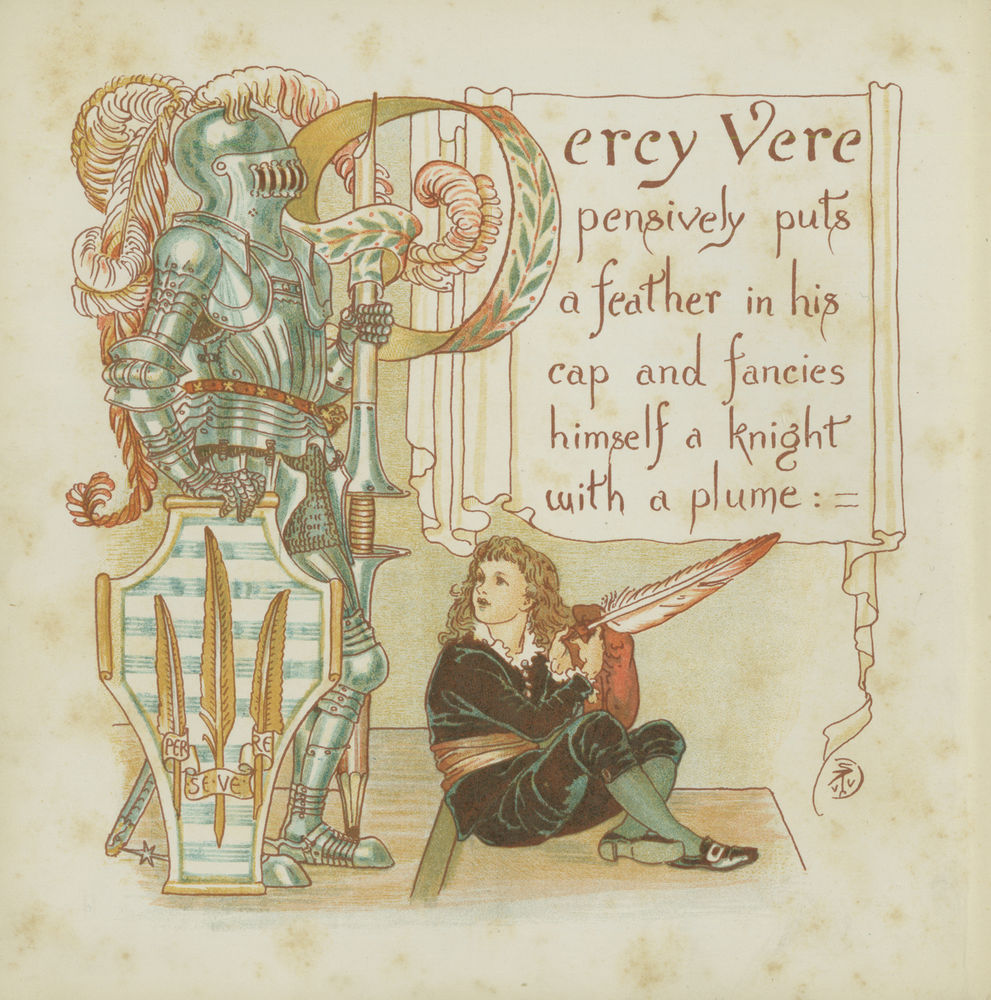 Percy Vere
pensively puts
a feather in his
cap and fancies
himself a knight
with a plume:=
PER
SE·VE
RE